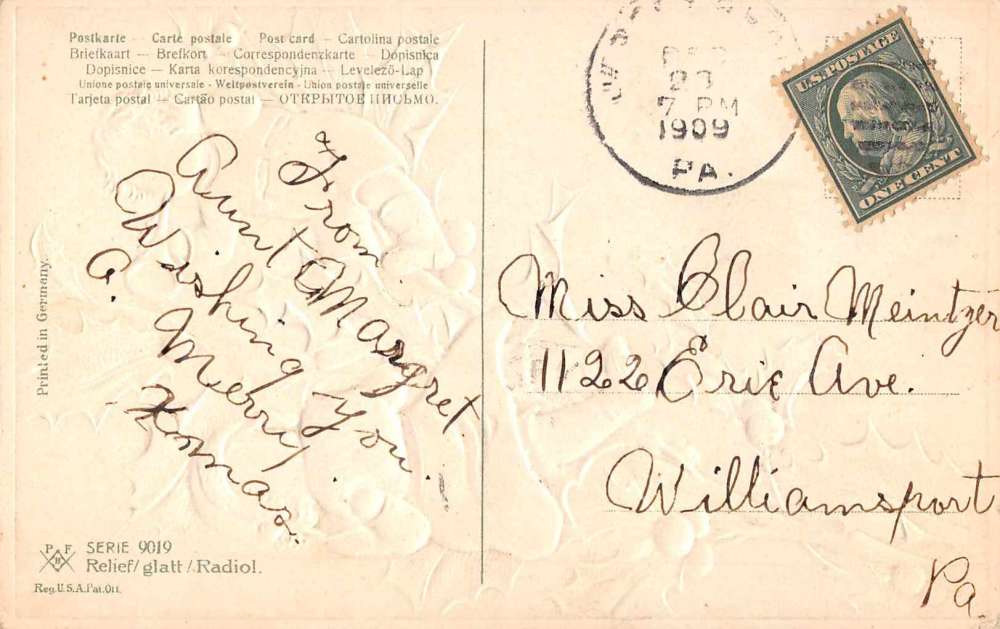 Postkarte — Carte postale Post card — Cartolina postale
Briefkaart — Brefkort — Correspondenzkarte — Dopisnica
Dopisnice — Karta korespondencyjna — Levelező-Lap
Unione postale universale - Weltpostverein - Union postale universelle
Tarjeta postal — Cartão postal — ОТКРЫТОЕ ПИСЬМО.
23
7 PM
1909
PA.
U.S. POSTAGE
ONE CENT
From
Aunt Margret
Wishing You
a. Merry
Xmas.
Miss Clair Meintzer
1122 Erie Ave.
Williamsport
Pa.
Printed in Germany.
P F
B
SERIE 9019
Relief/glatt/Radiol.
Reg. U.S.A. Pat. Off.